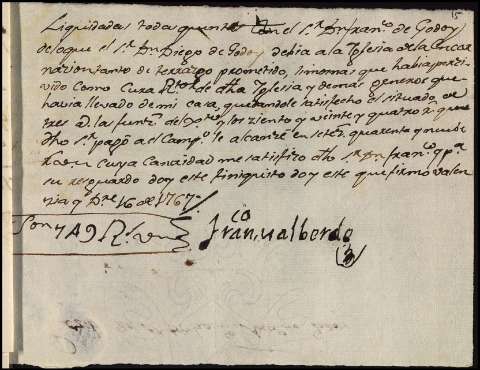 15
Liquidadas toda quenta Con el Sr. Dn franco. de Godoy
deloque el Sr. Dn Diego de Godoy debia a la Iglesia de la Encar
nazion tanto de prometido, limosnas que habia perci
vido Como Cura Rtor. de dha Iglesia y demas generos que
havia llevado de mi casa, quedandole satisfecho el situado de
tres ad. la del ziento y veinte y quatro Rs. que
dho Sr. pago a el le alcanzè en setezs. quarenta y nuebe
Rs. de vn Cuya Cantidad me satisfizo dho Sr. Dn franco. y pa.
su resguardo doy este finiquito doy este que firmo Valen
zia y Dre 16 de 1767
Son 749 Rs. de vn
Franco. Valberde